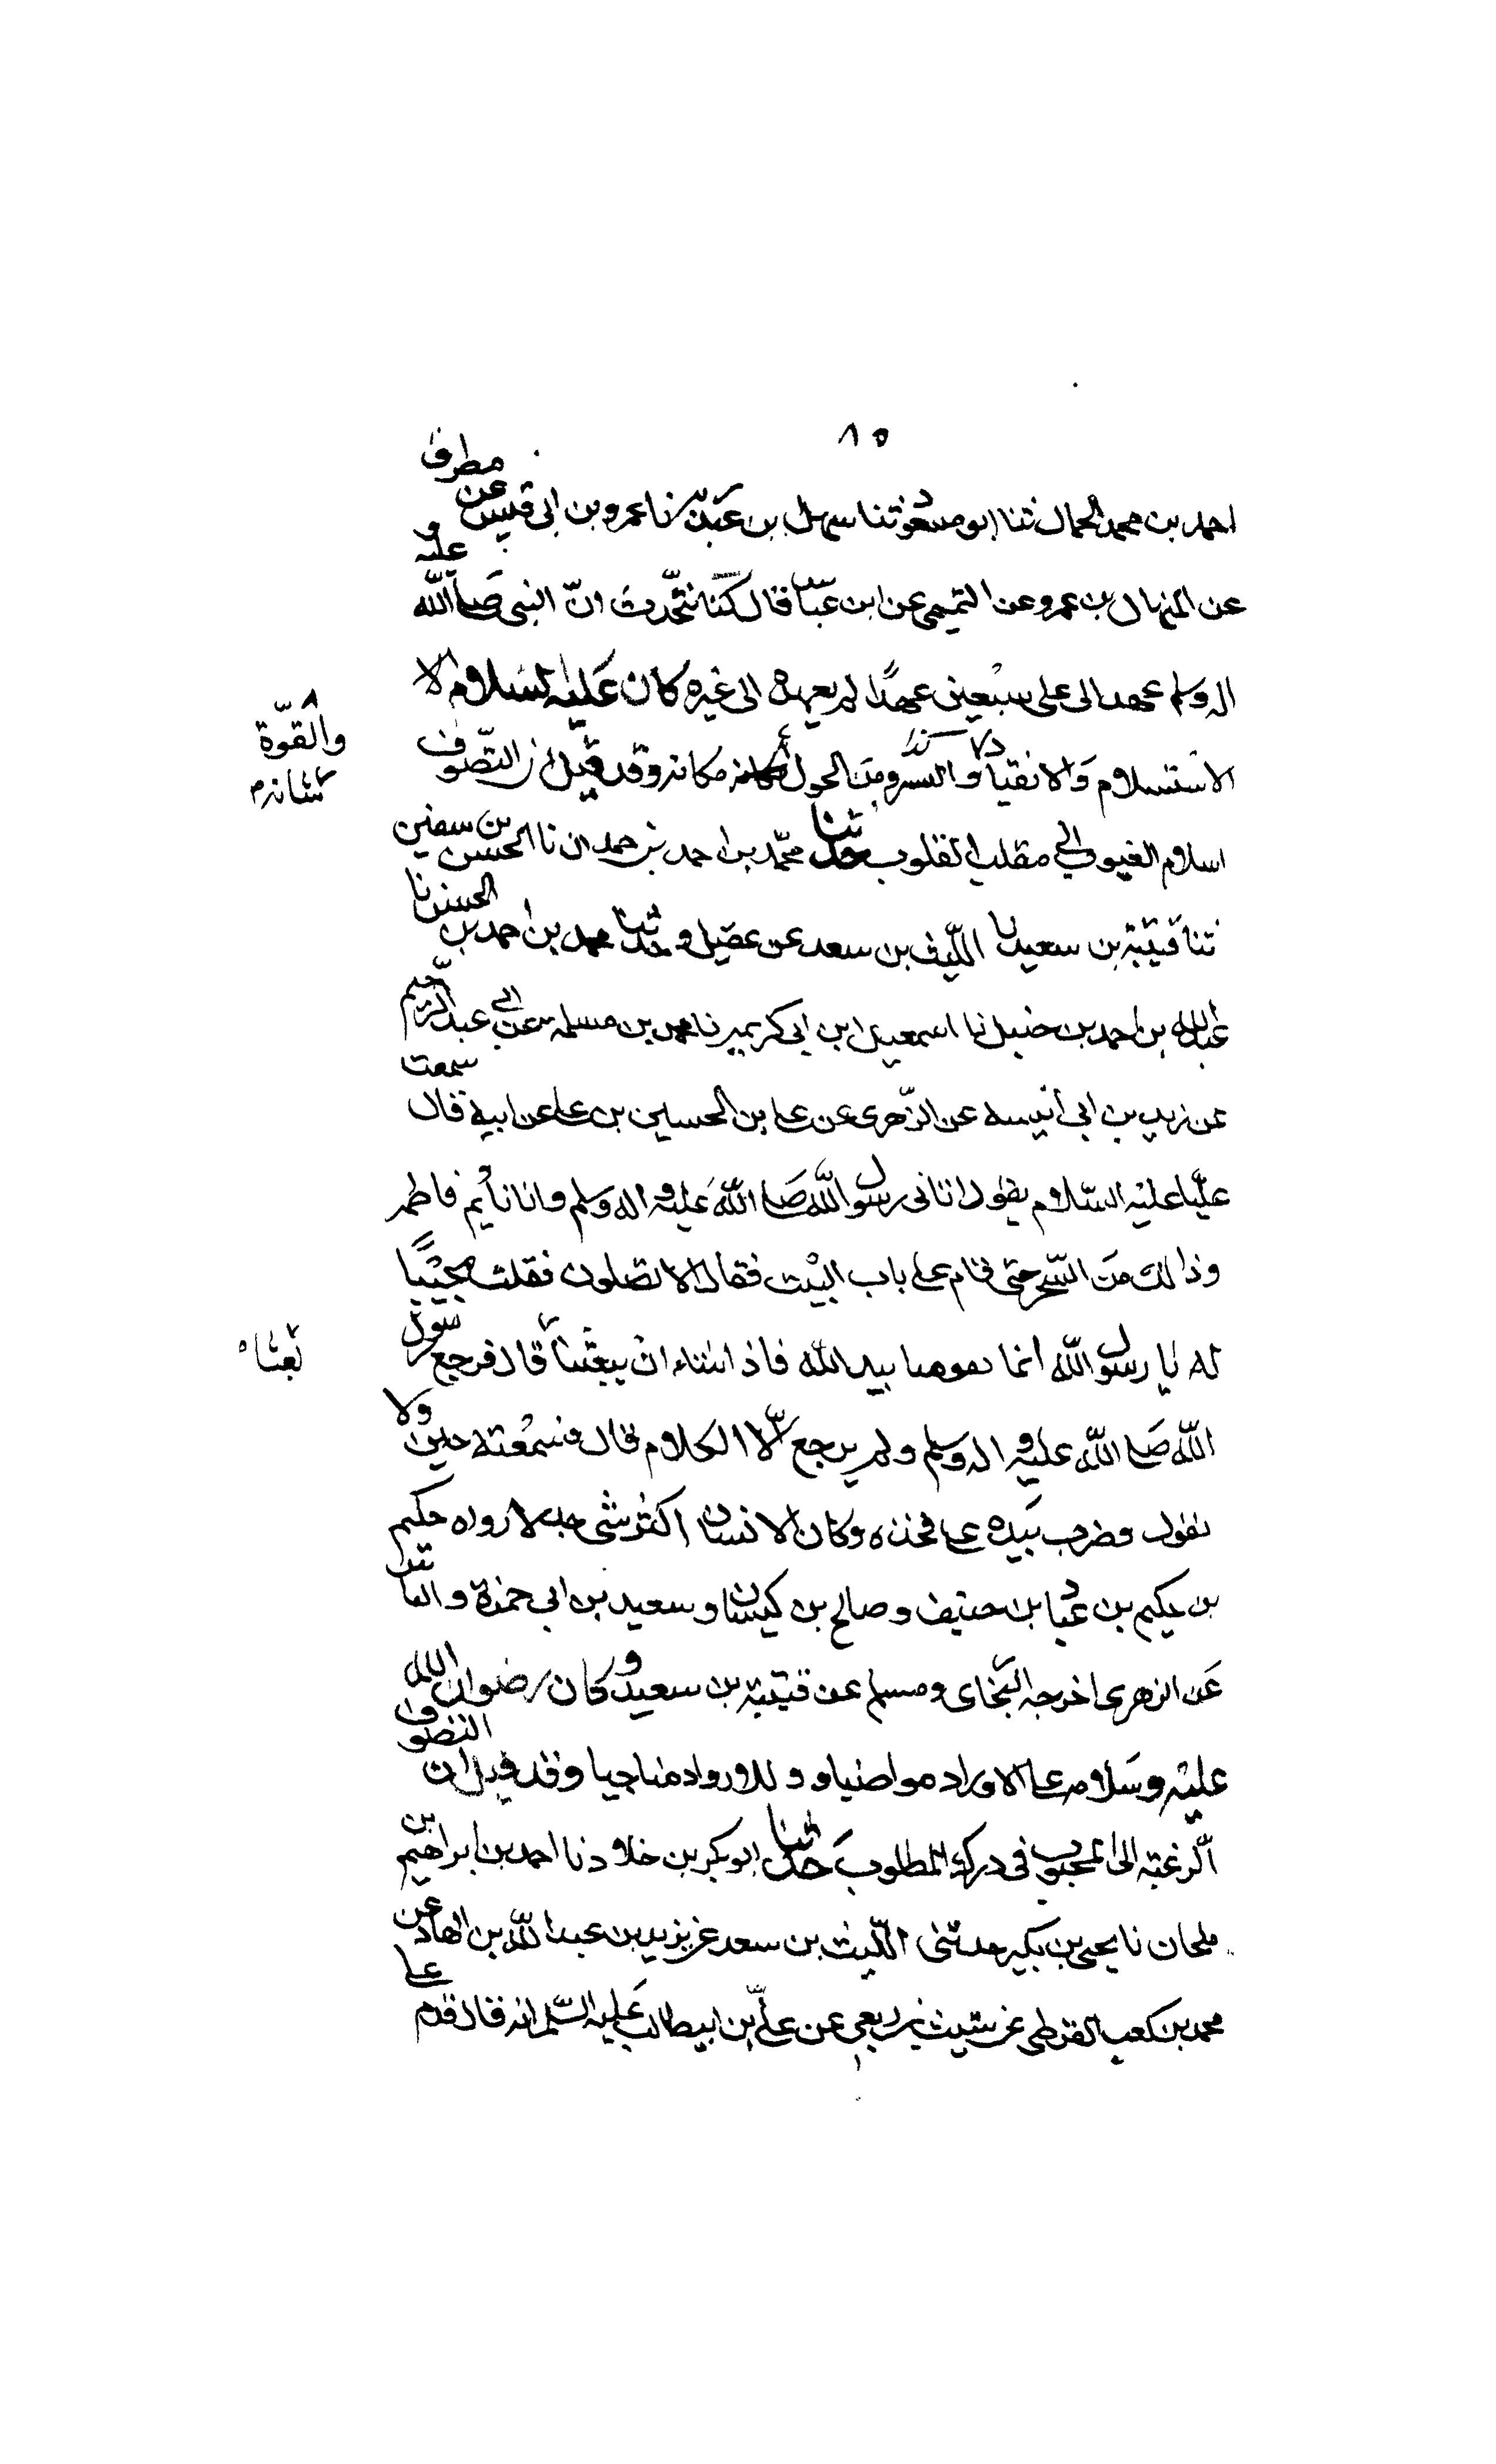 ٨٥
احمد بن محمد الحمال ثنا ابو مسعود ثنا سهل بن عبد ربه نا عمرو بن ابي قيس عن مطرف
عن المنهال بن عمرو عن التميمي عن ابن عباس قال كنّا نتحّدث انّ النبي صلى الله عليه و
اله وسلم عهد الى علي سبعين عهدًا لم يعهده الى غيره كان عليه السلام الا
الاستسلام والانقياد والتبرو من الحول مكانه وقد قيل ان التصّوف
والقوّة
شانه م
اسلام الغيوب الى مقلب القلوب حدثنا محمّد بن احمد بن حمدان نا الحسن بن سفين
ثنا قتيبة بن سعيد نا اللّيث بن سعد عن عقيل وحدثنا محمد بن احمد بن الحسن نا
عبد الله بن احمد بن حنبل نا اسمعيل ابن ابي كريمه نا محمد بن مسلمه عن ابي عبد الرّحيم
عن زيد بن ابي أنيسه عن الزّهري عن علي بن الحسين بن علي عن ابيه قال سمعت
عليّا عليه السّلام يقول اتانى رسول الله صلى الله عليه و اله وسلم وانا نأيم و فاطمه
وذالك من السّحر حتى قام على باب البيت فقال الا تصلون فقلت مجيبًا
له يا رسول الله انما نفوسنا بيد الله فاذا شاء ان يبعثنا قال فرجع رسول
بعثنا ه
الله صلى الله عليه و اله وسلم ولم يرجع الّى الكلام قال فسمعته حين ولا
يقول وضرب بيده على فخذه وكان الانسان اكثر شى جدلا رواه حكيم
بن حكيم بن عباد بن حنيف وصالح بن كيسان وسعيد بن ابي حمزة و
عن الزهري اخرجه البخاري ومسلم عن قتيبة بن سعيد وكان رضوان الله
عليه وسلامه على الاوراد مواضبا و وللاوراد مناحيا وقد قيل ان التصوف
الّرغبه الى المحبوب فى درك المطلوب حدثنا ابو بكر بن خلاد نا احمد بن ابراهيم بن
ملحان نا يحيى بن بكير حدثنى اللّيث بن سعد عن يزيد بن عبد الله بن الهاد عن
محمد بن كعب القرظي عن شبث بن ربعي عن علّي بن ابيطالب عليه السّلم انه قال قدم على